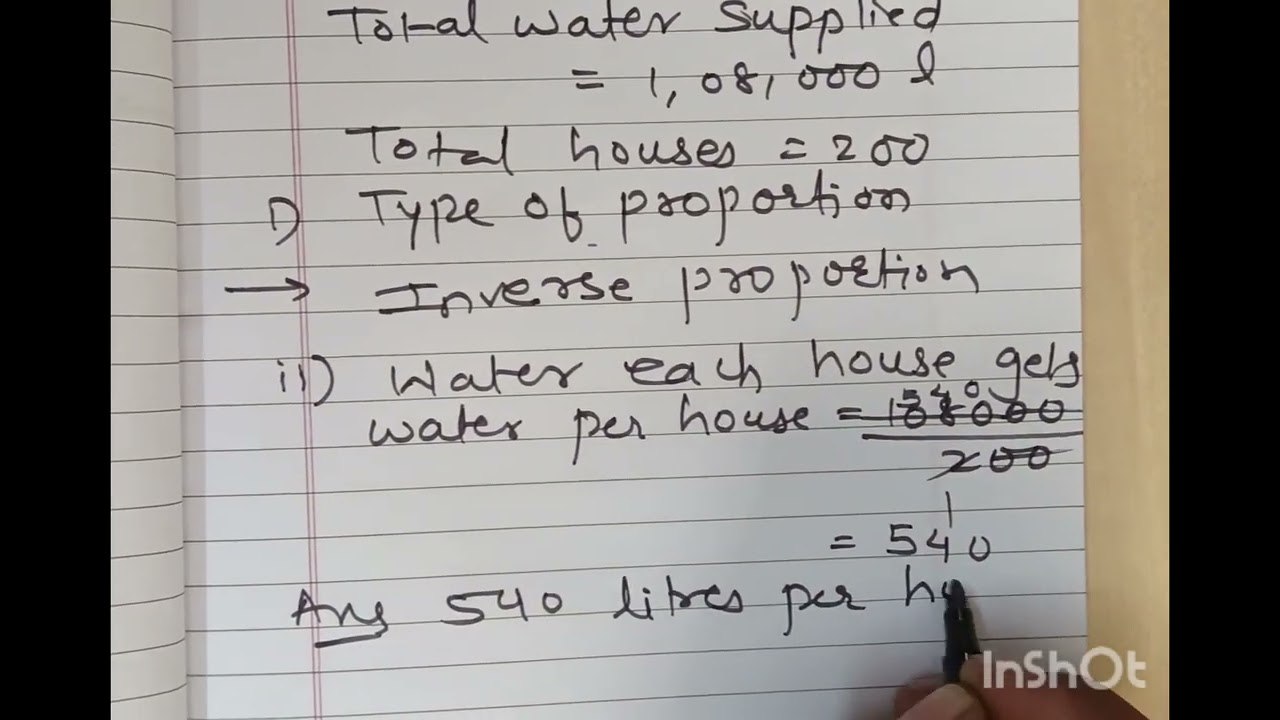 Total water supplied
= 1,08,000 l
Total houses = 200
i) Type of proportion
→ Inverse proportion
ii) Water each house gets
540
water per house = 108000
200
1
= 540
Ans 540 litres per ho
InShOt